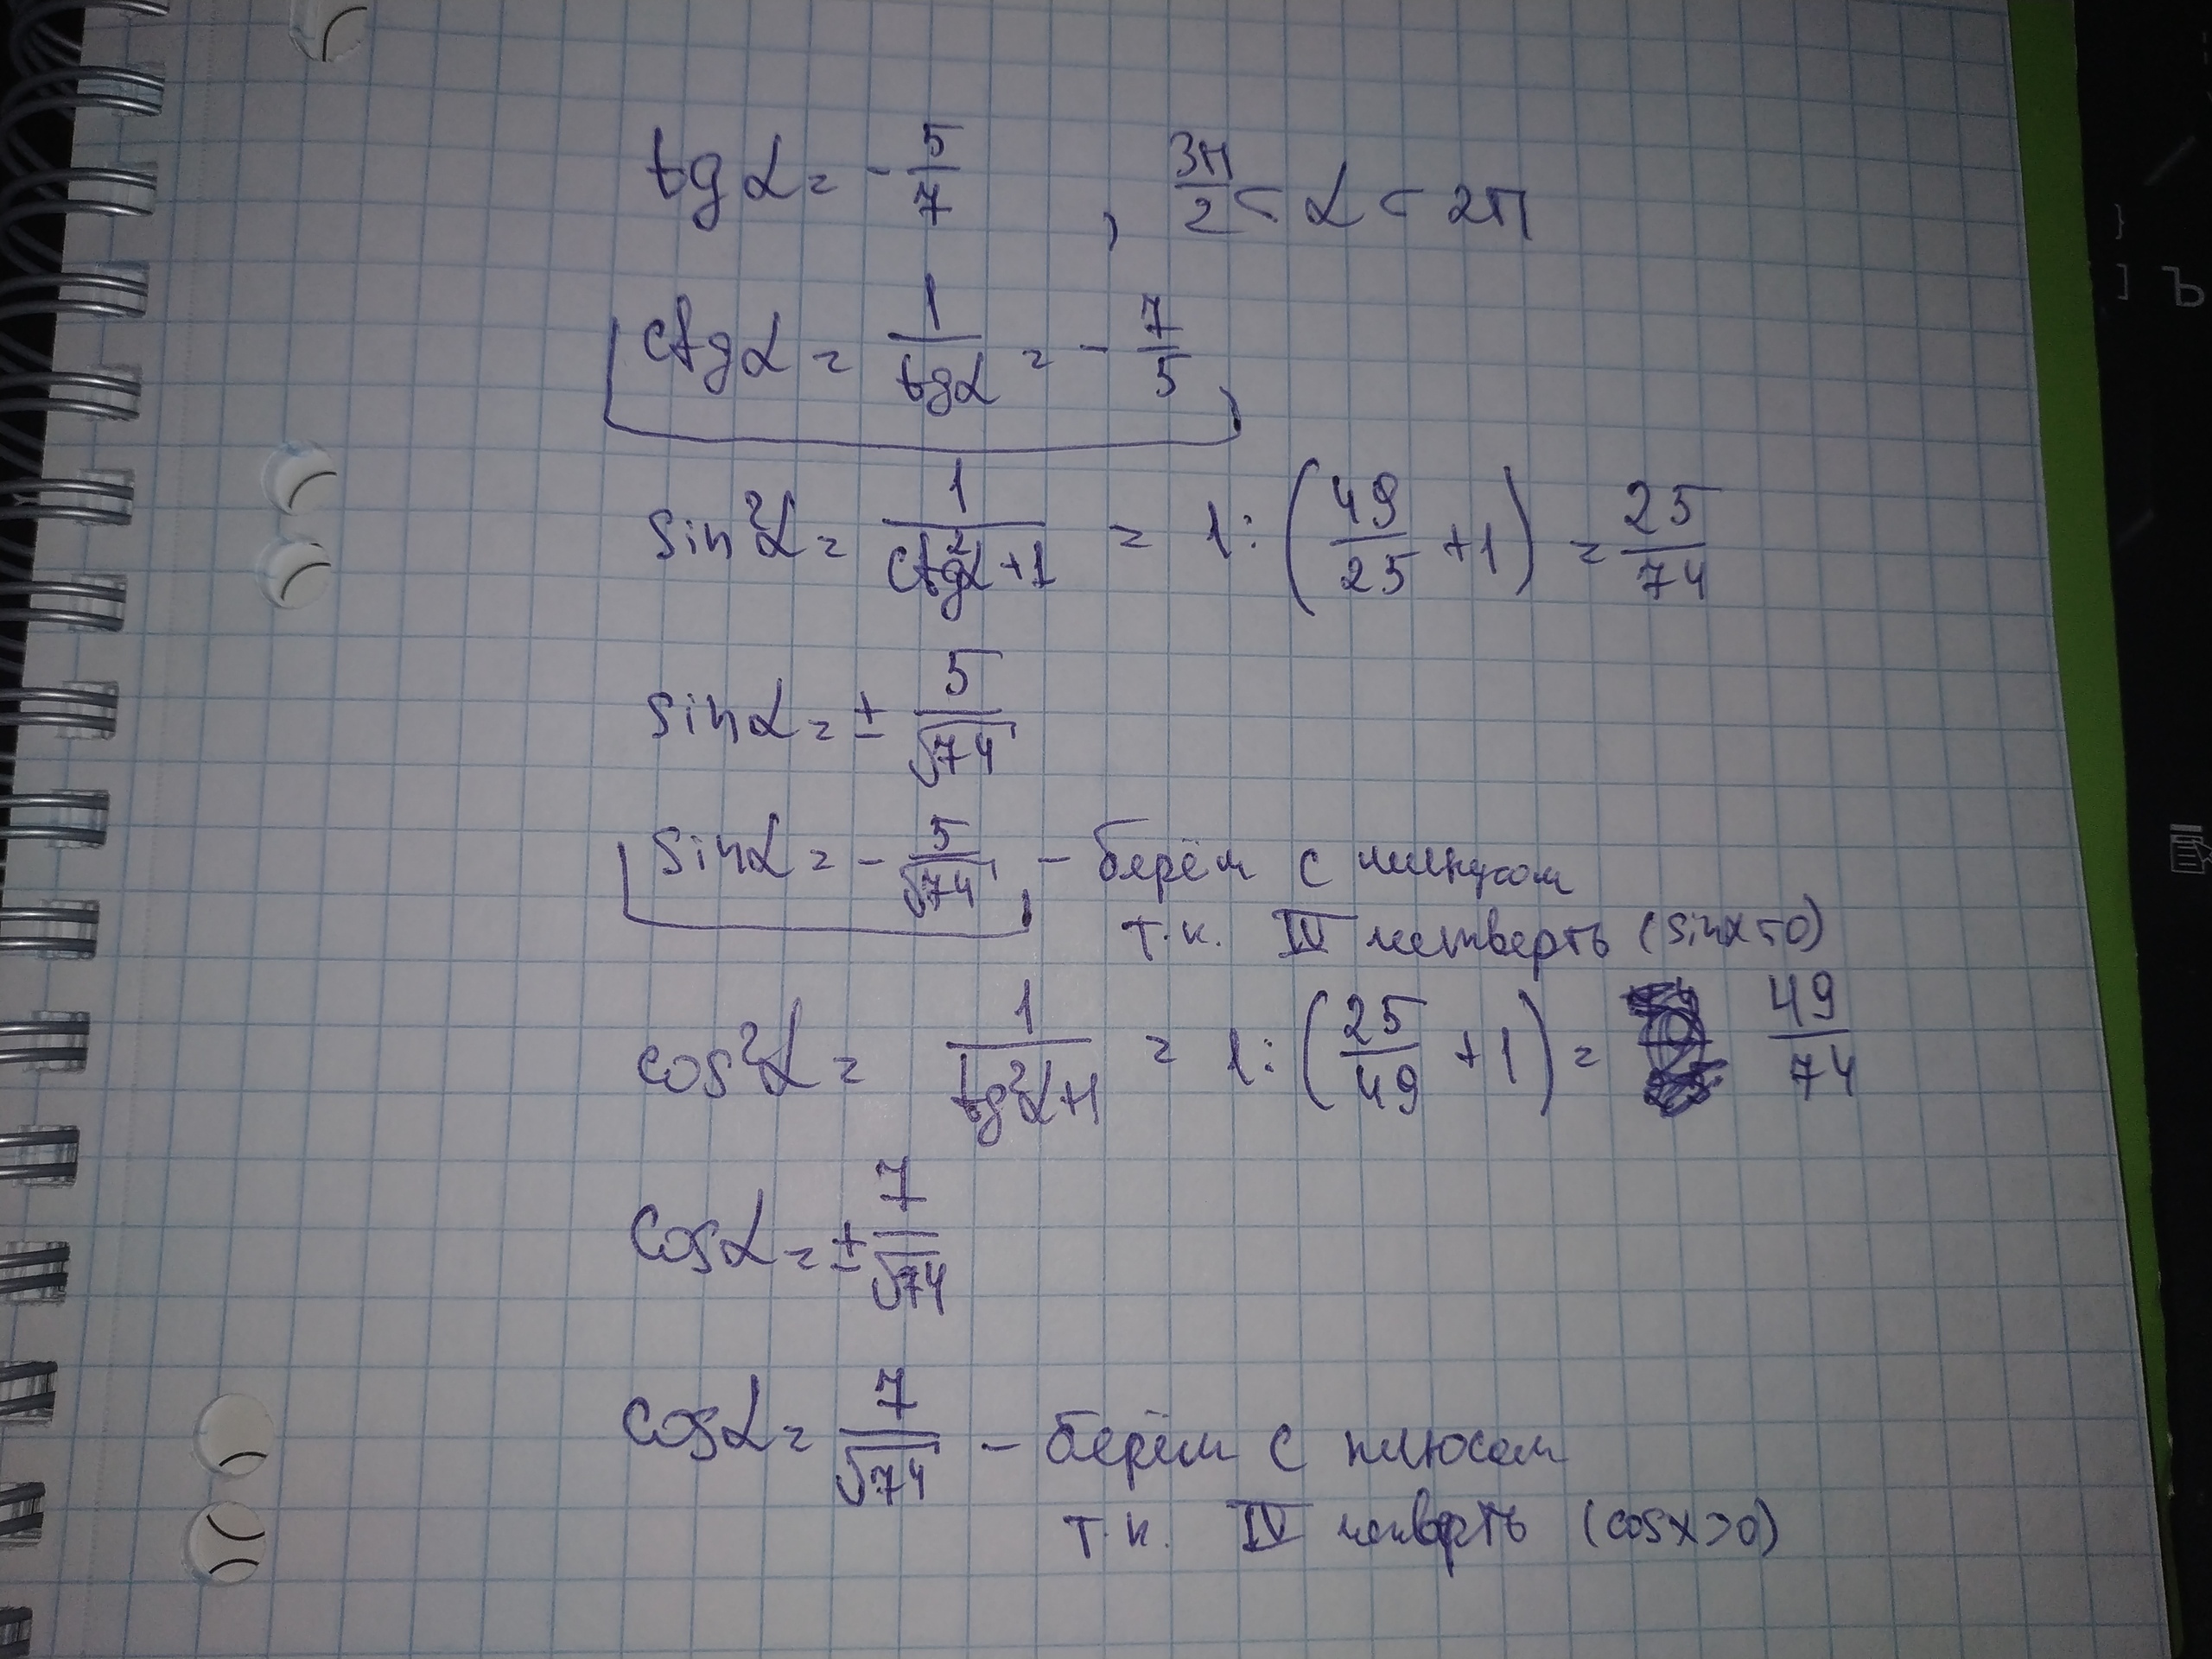 tgα = - 5/7 , 3π/2 < α < 2π
ctgα = 1/tgα = - 7/5
sin²α = 1/(ctg²α+1) = 1:(49/25 +1) = 25/74
sinα = ± 5/√74
sinα = - 5/√74 - берём с минусом
т.к. IV четверть (sinx<0)
cos²α = 1/(tg²α+1) = 1:(25/49 +1) = 49/74
cosα = ± 7/√74
cosα = 7/√74 - берём с плюсом
т.к. IV четверть (cosx>0)
}
] Ъ